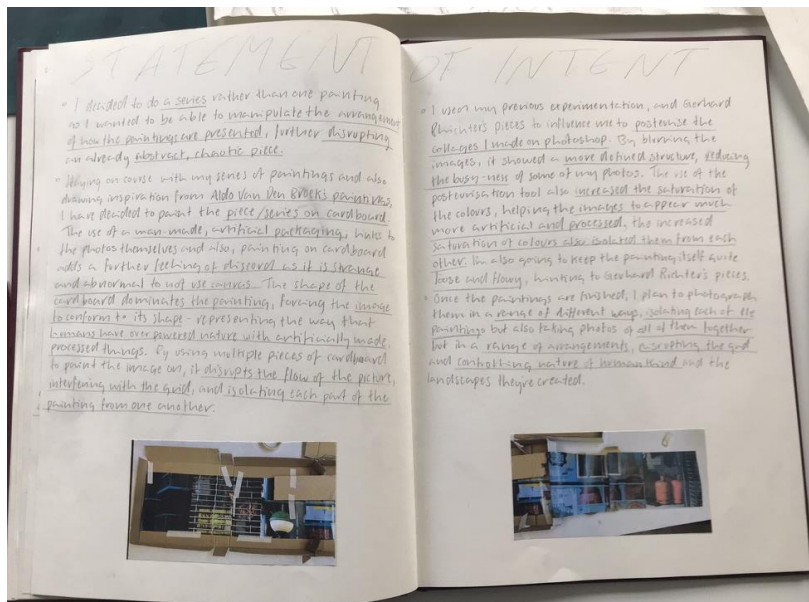 STATEMENT OF INTENT
• I decided to do a series rather than one painting
as I wanted to be able to manipulate the arrangement
of how the paintings are presented, further disrupting
an already abstract, chaotic piece.
• Staying on course with my series of paintings and also
drawing inspiration from Aldo Van Den Broek's paintings,
I have decided to paint the piece/series on cardboard.
The use of a man-made, artificial packaging, hints to
the photos themselves and also, painting on cardboard
adds a further feeling of discord as it is strange
and abnormal to not use canvas. The shape of the
cardboard dominates the painting, forcing the image
to conform to its shape - representing the way that
humans have over powered nature with artificially made,
processed things. By using multiple pieces of cardboard
to paint the image on, it disrupts the flow of the picture,
interfering with the grid, and isolating each part of the
painting from one another.
• I used my previous experimentation, and Gerhard
Rhichter's pieces to influence me to posterise the
collages I made on photoshop. By blurring the
images, it showed a more defined structure, reducing
the busy-ness of some of my photos. The use of the
posteurisation tool also increased the saturation of
the colours, helping the images to appear much
more artificial and processed. The increased
saturation of colours also isolated them from each
other. I'm also going to keep the painting itself quite
loose and flowy, hinting to Gerhard Richter's pieces.
• Once the paintings are finished, I plan to photograph
them in a range of different ways, isolating each of the
paintings but also taking photos of all of them together
but in a range of arrangements, disrupting the grid
and controlling nature of humankind and the
landscapes they're created.